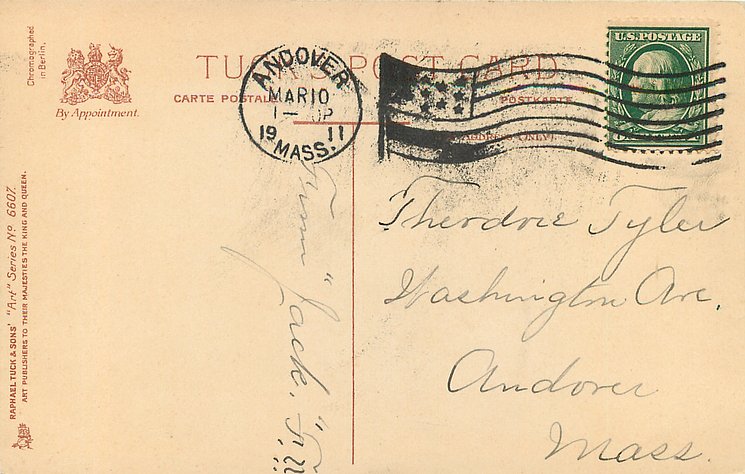 Chromographed
in Berlin.
By Appointment.
TUCK'S POST CARD
CARTE POSTALE
POSTKARTE
ANDOVER
MAR 10
1-
P
19 11
MASS.
U.S. POSTAGE
RAPHAEL TUCK & SONS' "Art" Series Nº 6607.
ART PUBLISHERS TO THEIR MAJESTIES THE KING AND QUEEN.
From "Jack."
Theodore Tyler
Washington Ave.
Andover
Mass.